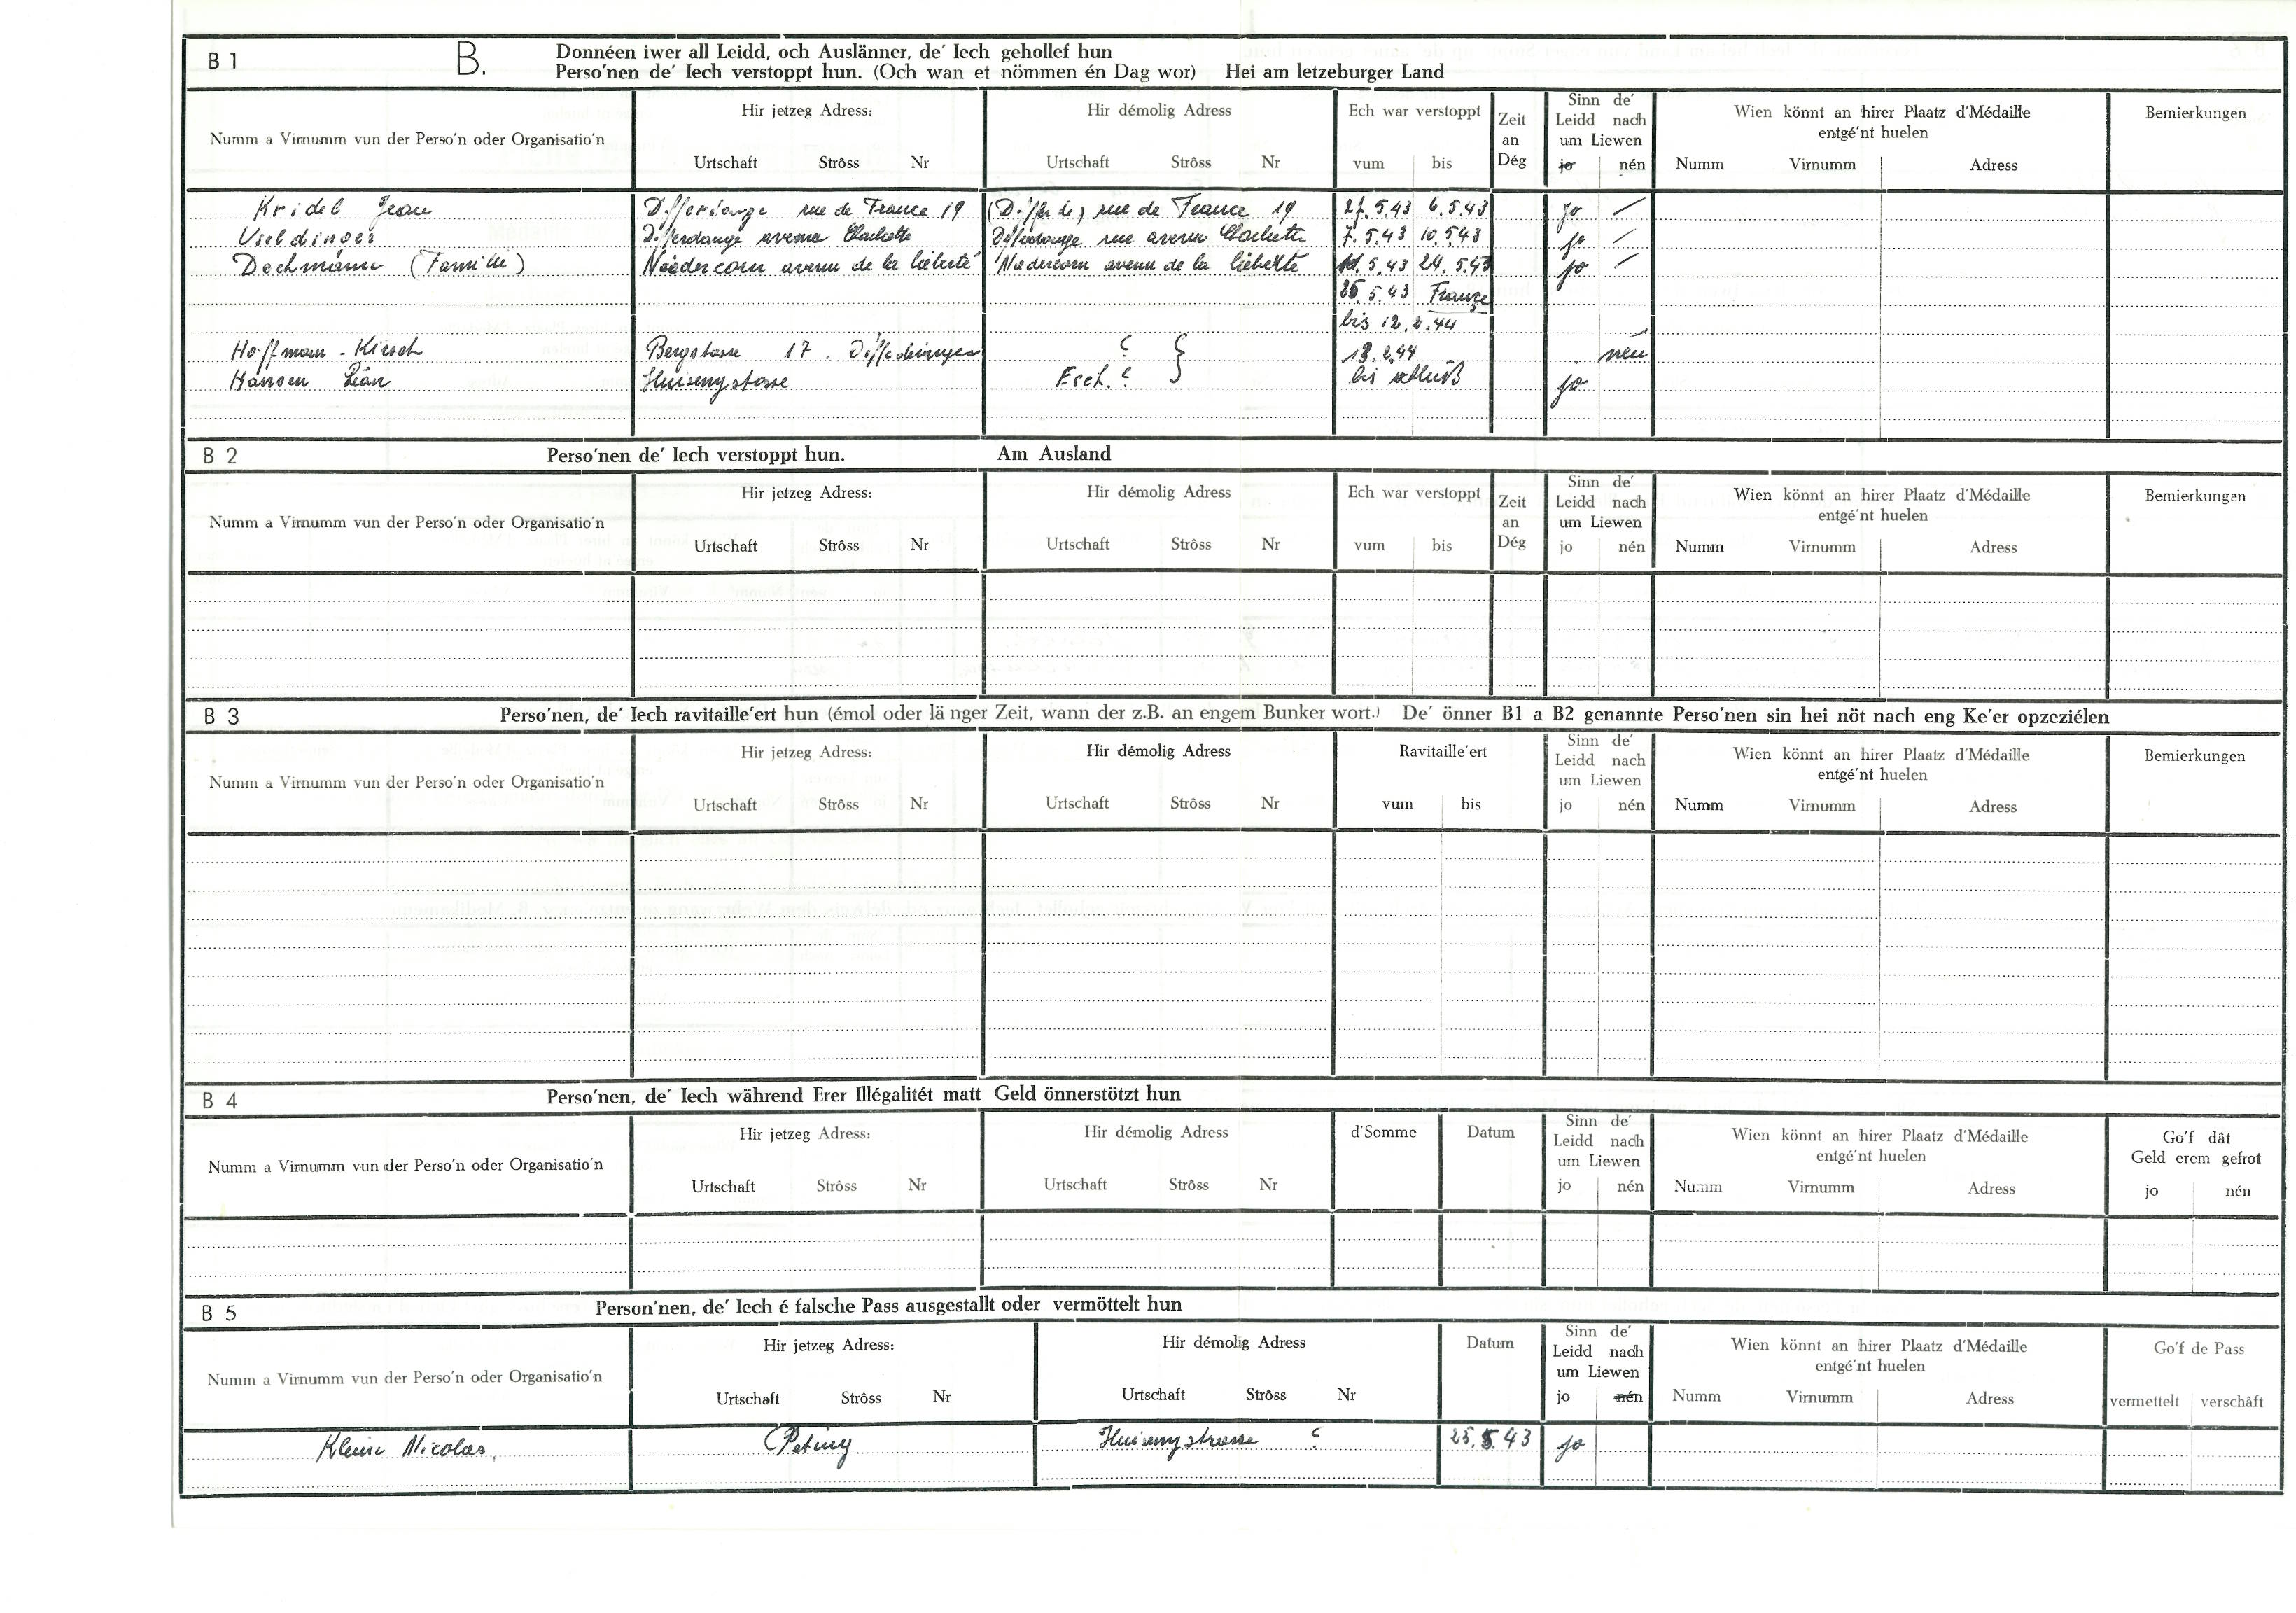 B 1
B.
Donnéen iwer all Leidd, och Auslänner, de´ Iech gehollef hun
Perso'nen de´ Iech verstoppt hun. (Och wan et nömmen én Dag wor) Hei am letzeburger Land
Numm a Virnumm vun der Perso'n oder Organisatio'n
Hir jetzeg Adress:
Urtschaft Strôss Nr
Hir démolig Adress
Urtschaft Strôss Nr
Ech war verstoppt
vum bis
Zeit
an
Dég
Sinn de´
Leidd nach
um Liewen
jo nén
Wien könnt an hirer Plaatz d'Médaille
entgé'nt huelen
Numm Virnumm Adress
Bemierkungen
Kridel Jean Differdange rue de France 19 rue de France 19 6.5.43 jo
Useldinger Differdange avenue rue avenue 7.5.43 10.5.43 jo
Dechmann (Famille) Niedercorn avenu de la Niedercorn avenu de la 5.43 24.5.43 jo
5.43 France
bis 12.2.44
Hoffmann - Kirsch 17. ? } 2.44 nén
Hansen Esch. ? bis jo
B 2
Perso'nen de´ Iech verstoppt hun. Am Ausland
Numm a Virnumm vun der Perso'n oder Organisatio'n
Hir jetzeg Adress:
Urtschaft Strôss Nr
Hir démolig Adress
Urtschaft Strôss Nr
Ech war verstoppt
vum bis
Zeit
an
Dég
Sinn de´
Leidd nach
um Liewen
jo nén
Wien könnt an hirer Plaatz d'Médaille
entgé'nt huelen
Numm Virnumm Adress
Bemierkungen
B 3
Perso'nen, de´ Iech ravitaille'ert hun (émol oder lä nger Zeit, wann der z.B. an engem Bunker wort.) De´ önner B1 a B2 genannte Perso'nen sin hei nöt nach eng Ke'er opzeziélen
Numm a Virnumm vun der Perso'n oder Organisatio'n
Hir jetzeg Adress:
Urtschaft Strôss Nr
Hir démolig Adress
Urtschaft Strôss Nr
Ravitaille'ert
vum bis
Sinn de´
Leidd nach
um Liewen
jo nén
Wien könnt an hirer Plaatz d'Médaille
entgé'nt huelen
Numm Virnumm Adress
Bemierkungen
B 4
Perso'nen, de´ Iech während Erer Illégalitét matt Geld önnerstötzt hun
Numm a Virnumm vun der Perso'n oder Organisatio'n
Hir jetzeg Adress:
Urtschaft Strôss Nr
Hir démolig Adress
Urtschaft Strôss Nr
d'Somme
Datum
Sinn de´
Leidd nach
um Liewen
jo nén
Wien könnt an hirer Plaatz d'Médaille
entgé'nt huelen
Numm Virnumm Adress
Go'f dât
Geld erem gefrot
jo nén
B 5
Person'nen, de´ Iech é falsche Pass ausgestallt oder vermöttelt hun
Numm a Virnumm vun der Perso'n oder Organisatio'n
Hir jetzeg Adress:
Urtschaft Strôss Nr
Hir démolig Adress
Urtschaft Strôss Nr
Datum
Sinn de´
Leidd nach
um Liewen
jo nén
Wien könnt an hirer Plaatz d'Médaille
entgé'nt huelen
Numm Virnumm Adress
Go'f de Pass
vermettelt verschâft
Nicolas, ? 25.5.43 jo